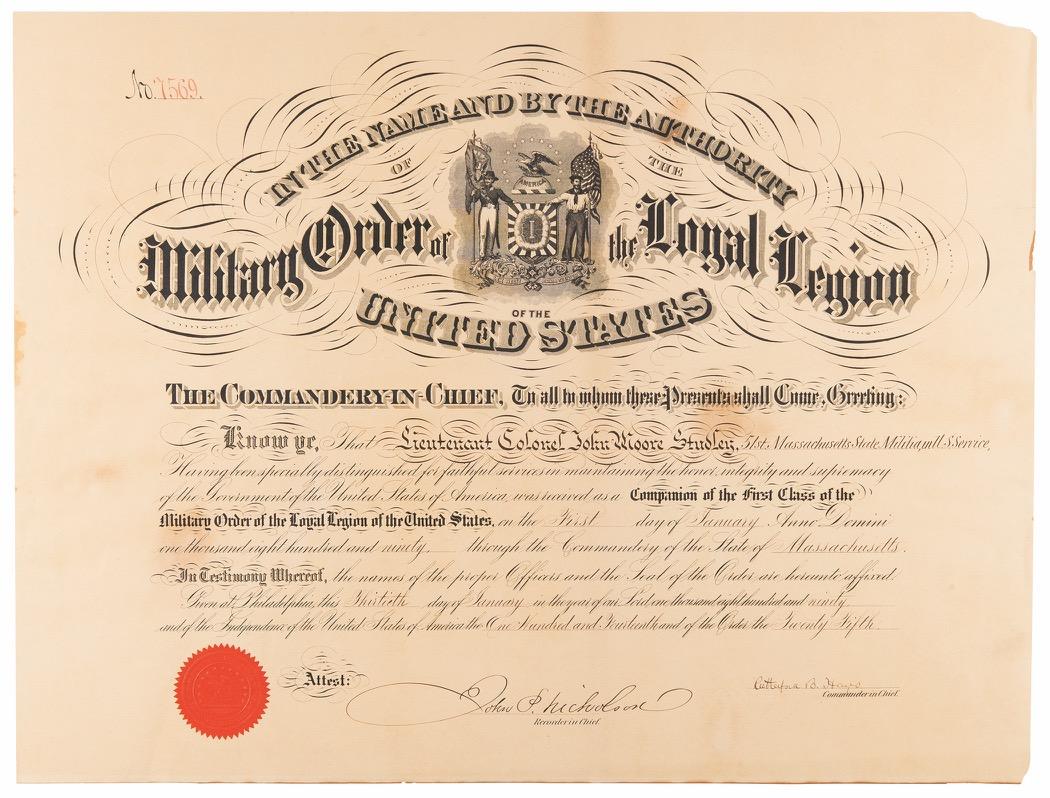 No. 7569.
IN THE NAME AND BY THE AUTHORITY
OF THE
AMERICA
Military Order of the Loyal Legion
OF THE
UNITED STATES
THE COMMANDERY-IN-CHIEF, To all to whom these Presents shall Come, Greeting:
Know ye, That Lieutenant Colonel John Moore Studley, 51st. Massachusetts State Militia, in U.S. Service,
Having been specially distinguished for faithful services in maintaining the honor, integrity and supremacy
of the Government of the United States of America, was received as a Companion of the First Class of the
Military Order of the Loyal Legion of the United States, on the First day of January Anno Domini
one thousand eight hundred and ninety, through the Commandery of the State of Massachusetts.
In Testimony Whereof, the names of the proper Officers and the Seal of the Order are hereunto affixed.
Given at Philadelphia, this Thirtieth day of January in the year of our Lord, one thousand eight hundred and ninety
and of the Independence of the United States of America the One Hundred and Fourteenth and of the Order the Twenty Fifth.
Attest:
John P. Nicholson
Recorder in Chief.
Rutherford B. Hayes
Commander in Chief.